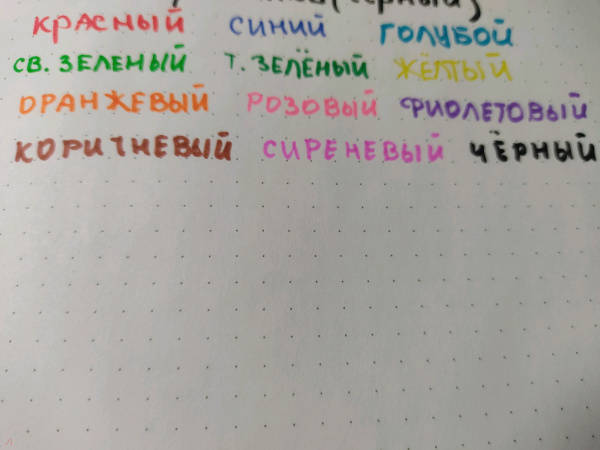 (чёрный)
КРАСНЫЙ СИНИЙ ГОЛУБОЙ
СВ. ЗЕЛЕНЫЙ Т. ЗЕЛЁНЫЙ ЖЁЛТЫЙ
ОРАНЖЕВЫЙ РОЗОВЫЙ ФИОЛЕТОВЫЙ
КОРИЧНЕВЫЙ СИРЕНЕВЫЙ ЧЁРНЫЙ